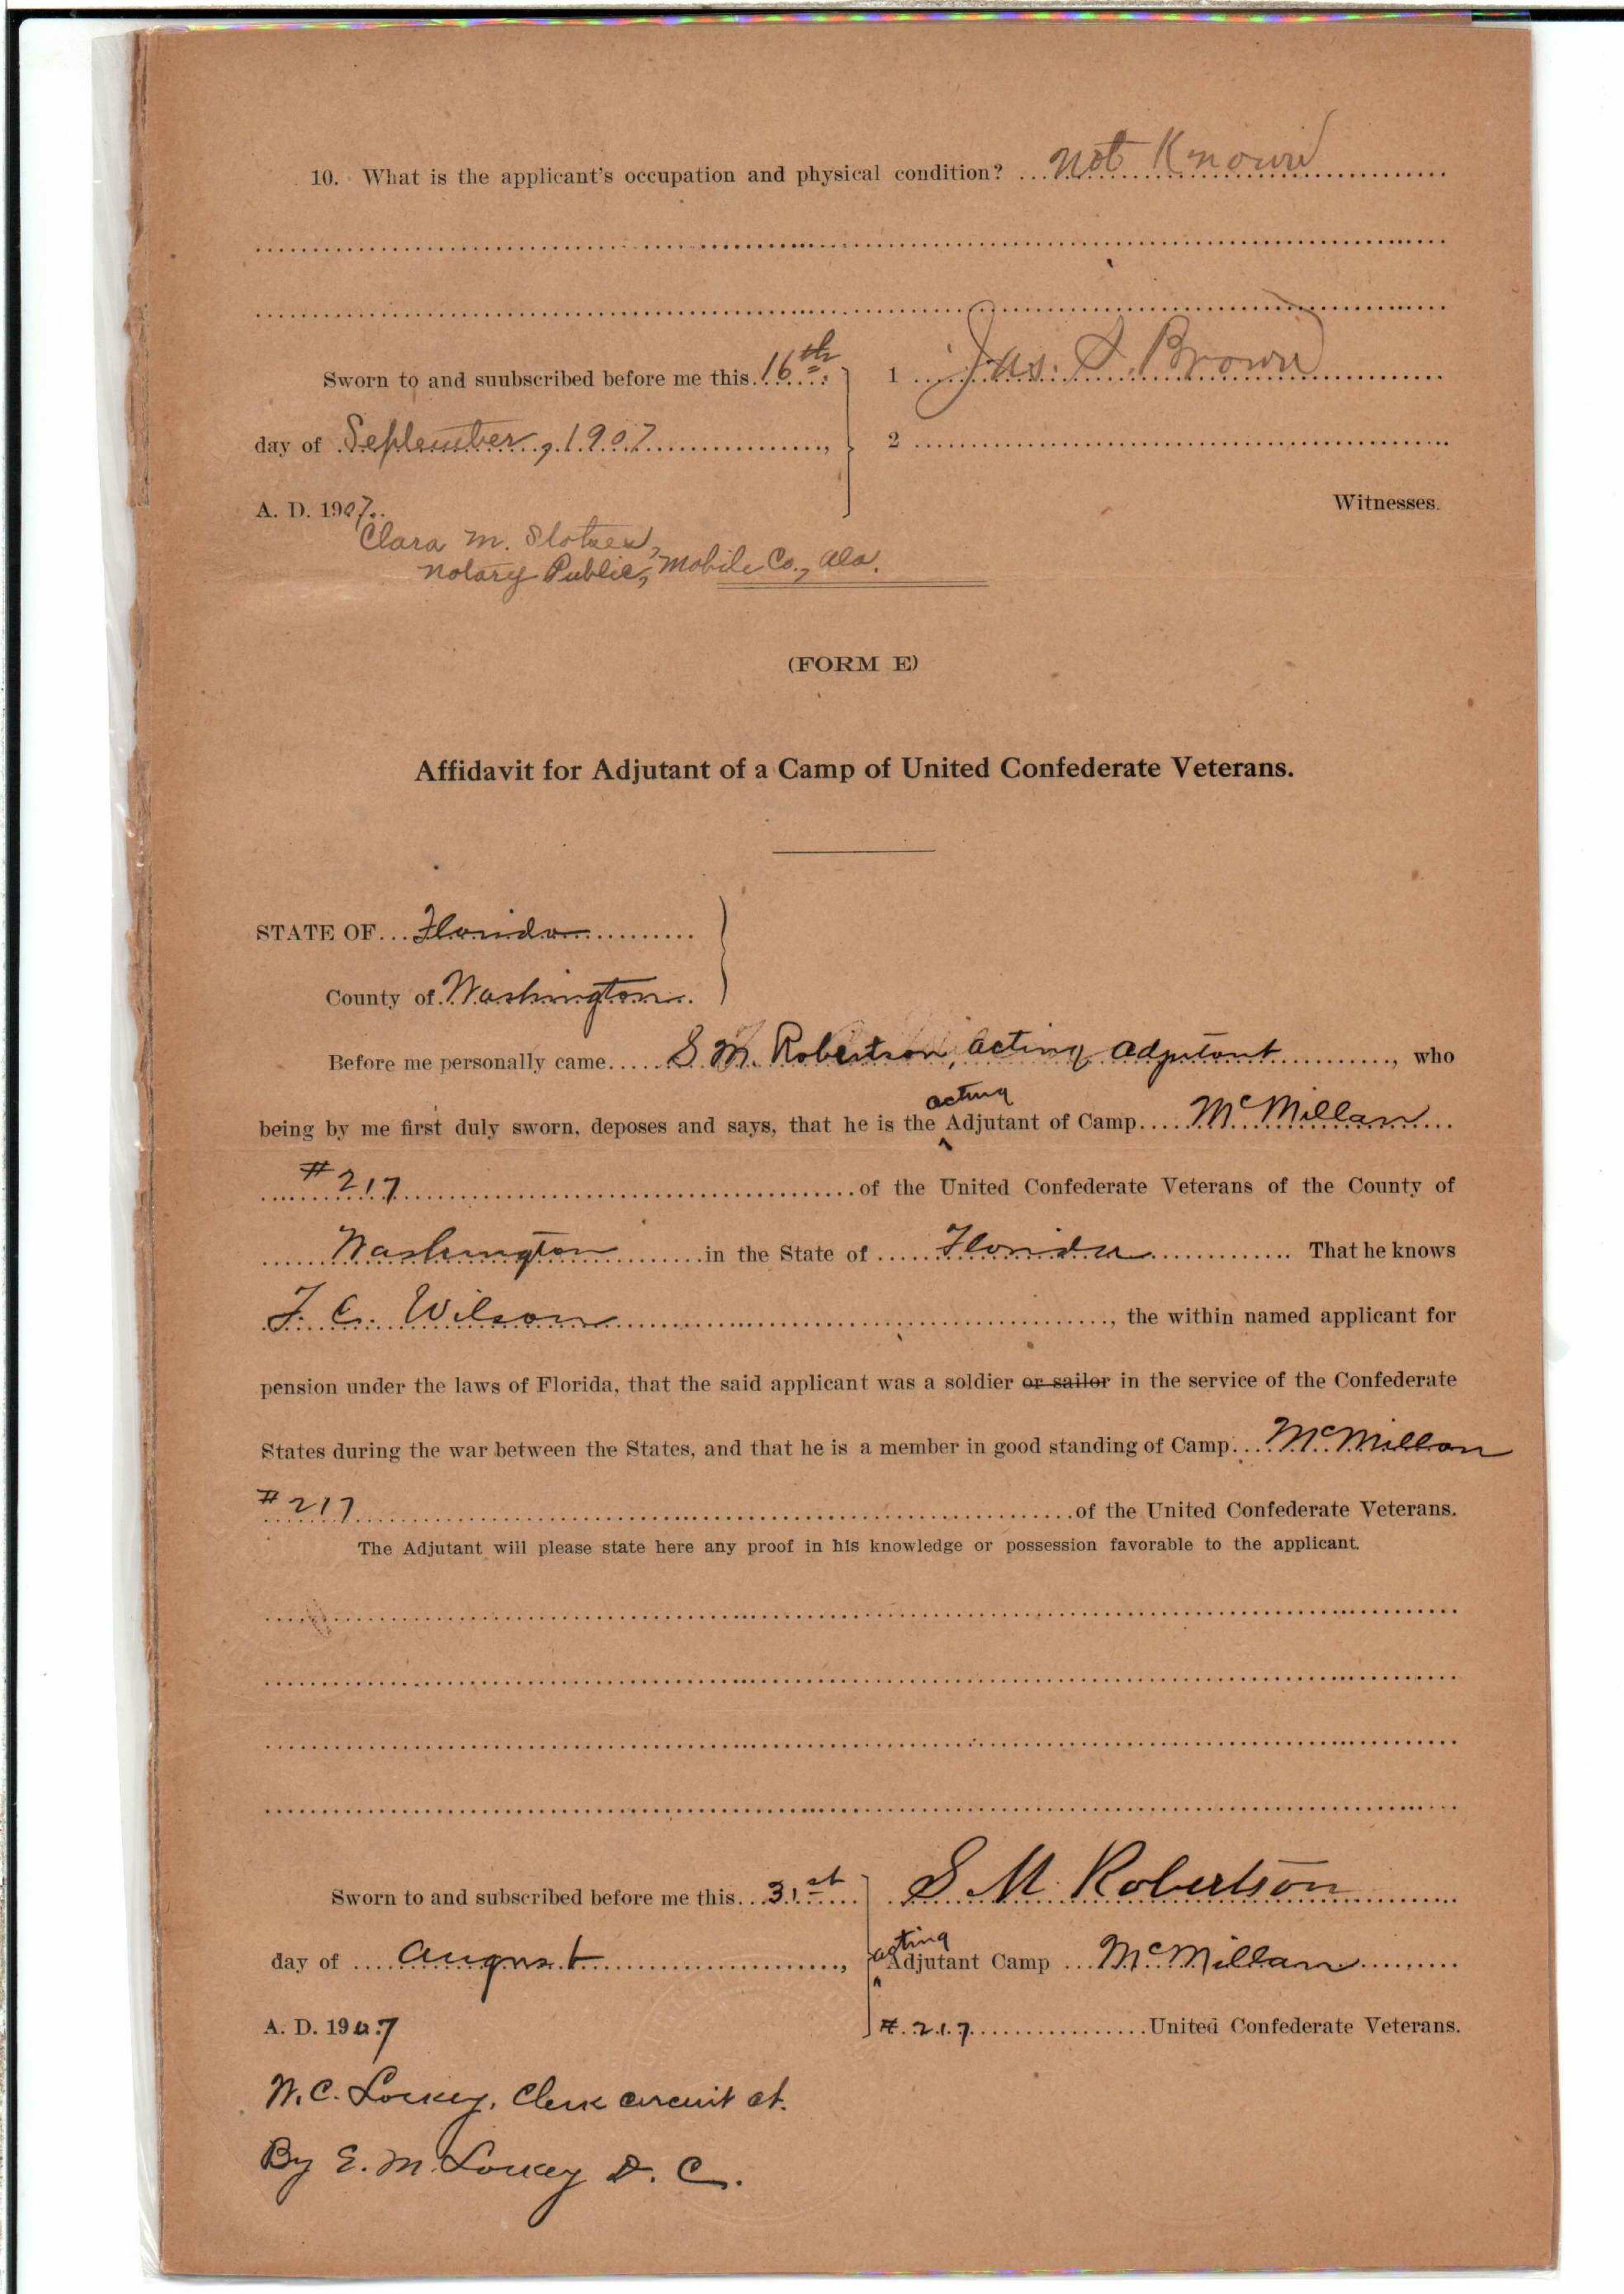 10. What is the applicant's occupation and physical condition? Not Known
Sworn to and suubscribed before me this 16th 1 Jas. S. Brown
day of September, 1907, 2
A. D. 1907. Witnesses.
Clara M.
Notary Public, Mobile Co., Ala.
(FORM E)
Affidavit for Adjutant of a Camp of United Confederate Veterans.
STATE OF Florida
County of Washington
Before me personally came S. M. Robertson, acting adjutant, who
acting
being by me first duly sworn, deposes and says, that he is the Adjutant of Camp McMillan
# 217 of the United Confederate Veterans of the County of
Washington in the State of Florida That he knows
F. C. Wilson, the within named applicant for
pension under the laws of Florida, that the said applicant was a soldier or sailor in the service of the Confederate
States during the war between the States, and that he is a member in good standing of Camp McMillan
# 217 of the United Confederate Veterans.
The Adjutant will please state here any proof in his knowledge or possession favorable to the applicant.
Sworn to and subscribed before me this 31st S M Robertson
day of August, acting Adjutant Camp McMillan
A. D. 1907 #217 United Confederate Veterans.
W. C. Lockey, Clerk circuit ct.
By E. M. Lockey D. C.